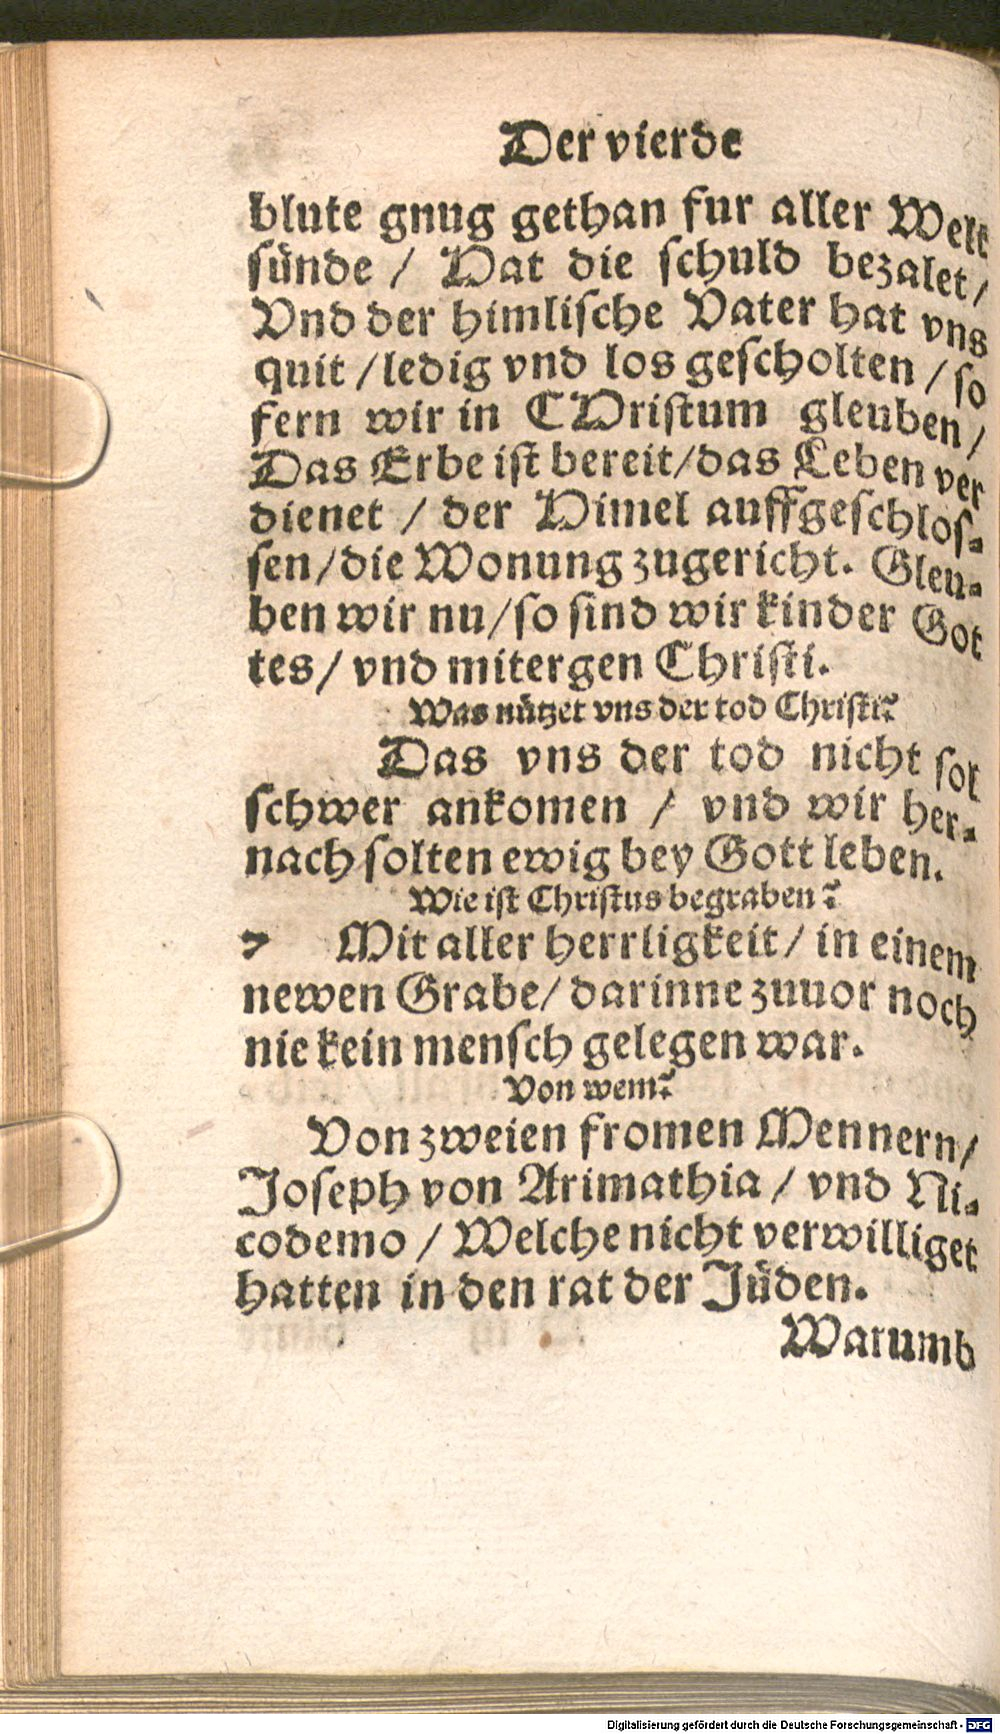 Der vierde
blute gnug gethan fur aller Welt
sünde / Hat die schuld bezalet /
Vnd der himlische Vater hat vns
quit / ledig vnd los gescholten / so
fern wir in CHristum gleuben /
Das Erbe ist bereit / das Leben ver
dienet / der Himel auffgeschlos-
sen / die Wonung zugericht. Gleu-
ben wir nu / so sind wir kinder Got
tes / vnd mitergen Christi.
Was nützet vns der tod Christi?
Das vns der tod nicht sol
schwer ankomen / vnd wir her-
nach solten ewig bey Gott leben.
Wie ist Christus begraben?
7 Mit aller herrligkeit / in einem
newen Grabe / darinne zuuor noch
nie kein mensch gelegen war.
Von wem?
Von zweien fromen Mennern /
Joseph von Arimathia / vnd Ni-
codemo / Welche nicht verwilliget
hatten in den rat der Jüden.
Warumb
Digitalisierung gefördert durch die Deutsche Forschungsgemeinschaft - DFG